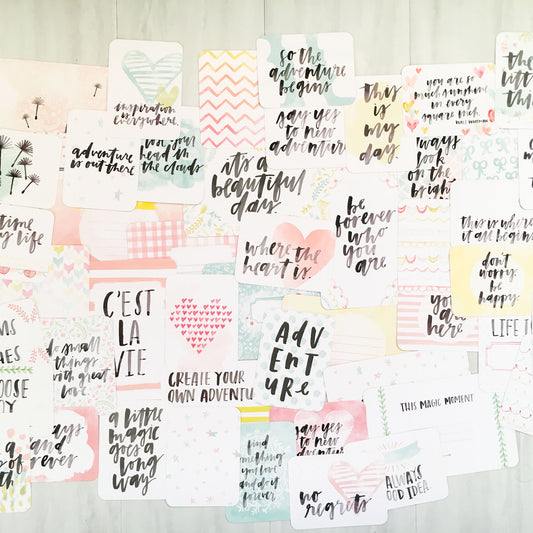 inspiration is
everywhere.
so the
adventure
begins
say yes
to new
adventure
this
is
my
day.
you are so
much sunshine
in every
square inch.
the
little
thi
adventure
is out there
head in
the clouds
it's a
beautiful
day.
always
look
on the
bright
time
my life
where the
heart is.
be
forever
who
you
are
this is where
it all begins
don't
worry.
be
happy.
you
are
here
C'EST
LA
VIE
CREATE YOUR
OWN ADVENTU
ADV
ENT
URE
LIFE
do small
things
with great
love.
THIS MAGIC MOMENT
a little
magic
goes a
long
way
and
forever
find
something
you love
and do it
forever
say yes
to new
adventure
no
regrets
ALWAYS
OOD IDEA